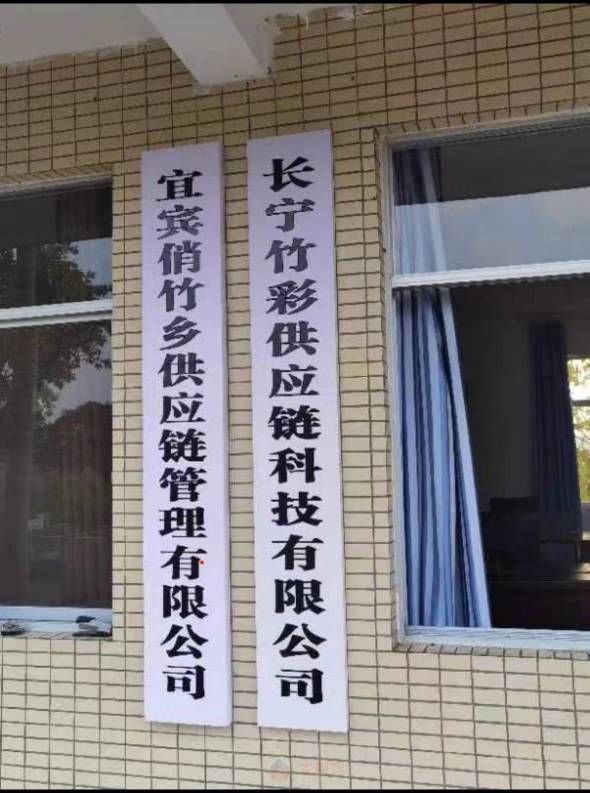 宜宾俏竹乡供应链管理有限公司
长宁竹彩供应链科技有限公司